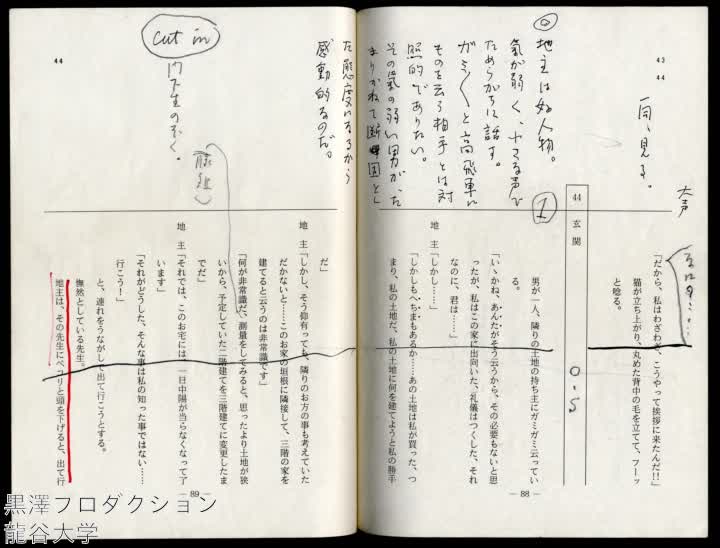 43
44
一同、見る。
大声
「だから、私はわざわざ、こうやって挨拶に来たんだ!!」
猫が立ち上がり、丸めた背中の毛を立てて、フーッ
と唸る。
44 玄関
1
0.5
◎地主は好人物。
気が弱く、
ためらがちに話す。
がミ〱と高飛車に
ものを云う相手とは対
照的でありたい。
その気の弱い男が、た
まりかねて断固とし
た態度になるから
感動的なのだ。
男が一人、隣りの土地の持ち主にガミガミ云ってい
る。
「いゝかね、あんたがそう云うから、その必要もないと思
ったが、私はこの家に出向いた、礼儀はつくした、それ
なのに、君は……」
地 主「しかし……」
「しかしもへちまもあるか……あの土地は私が買った、つ
まり、私の土地だ、私の土地に何を建てようと私の勝手
― 88 ―
44
cut in
門下生の
だ」
地 主「しかし、そう仰有っても、隣りのお方の事も考えていた
だかないと……このお家の垣根に隣接して、三階の家を
建てると云うのは非常識です」
「何が非常識だ、測量をしてみると、思ったより土地が狭
いから、予定していた二階建てを三階建てに変更したま
でだ」
地 主「それでは、このお宅には、一日中陽が当らなくなって了
います」
「それがどうした、そんな事は私の知った事ではない……
行こう!」
と、連れをうながして出て行こうとする。
憮然としている先生。
地主は、その先生にペコリと頭を下げると、出て行
― 89 ―
黒澤プロダクション
龍谷大学